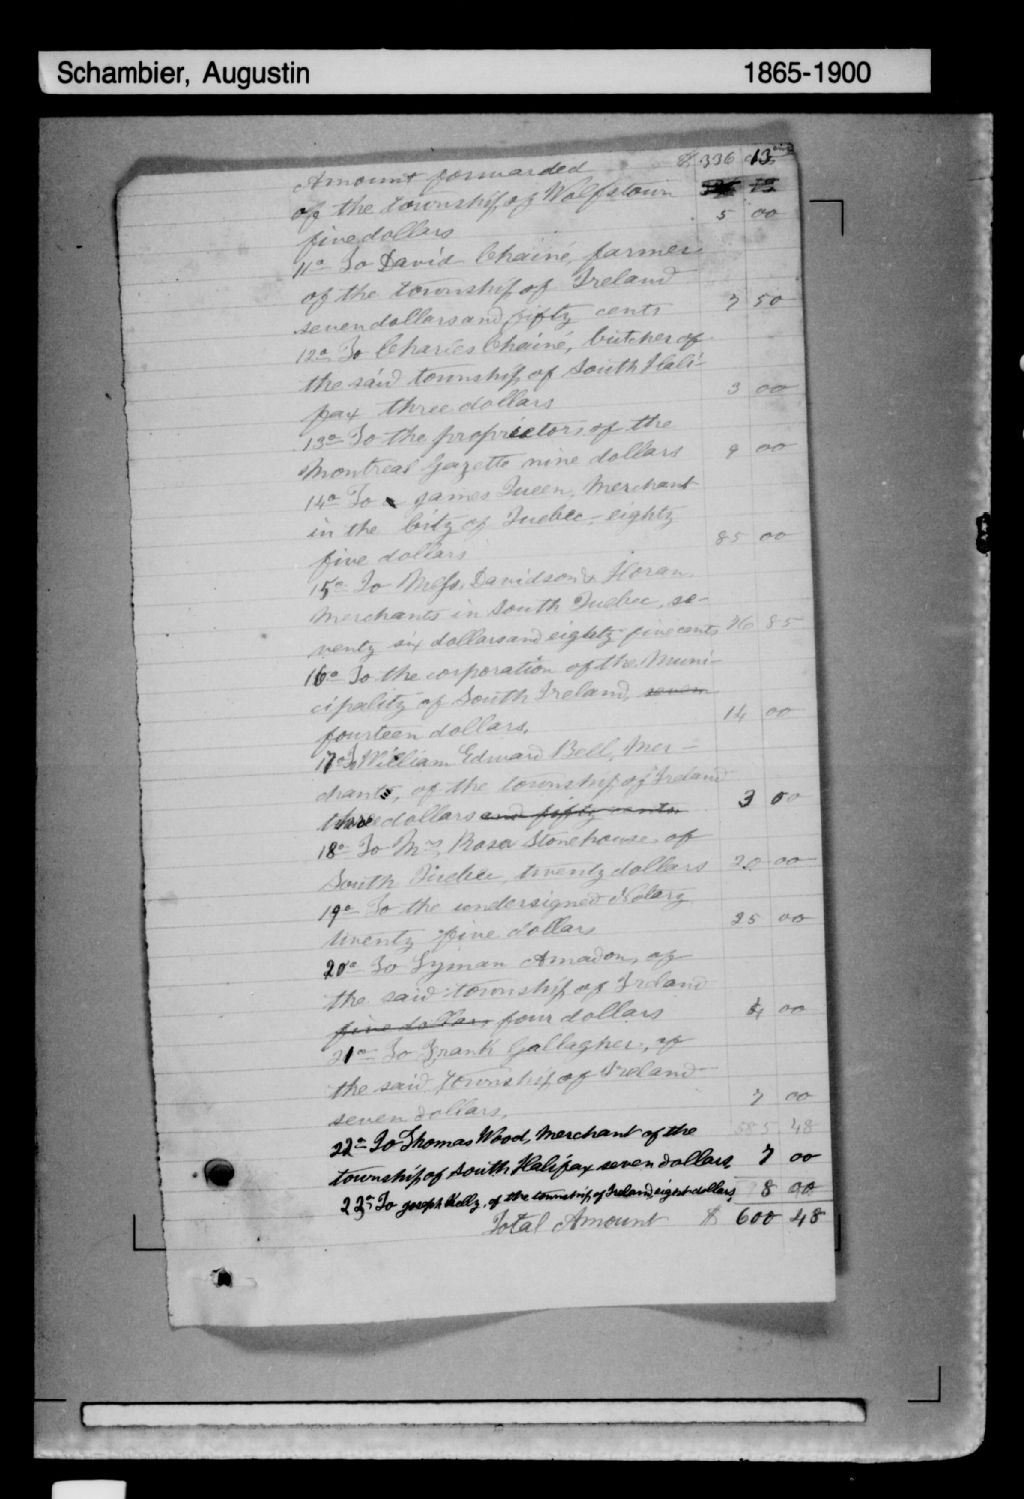 Schambier, Augustin 1865-1900
Amount forwarded $ 336 13
of the township of Wolfstown
five dollars 5 00
11o To David Chainé, farmer
of the township of Ireland
seven dollars and fifty cents 7 50
12o To Charles Chainé, butcher of
the said township of South Hali-
fax three dollars 3 00
13o To the proprietors of the
Montreal Gazette nine dollars 9 00
14o To James Queen, Merchant
in the City of Quebec - eighty
five dollars 85 00
15o To Mess. Davidson & Horan,
Merchants in South Quebec, se-
venty six dollars and eighty five cents 76 85
16o To the corporation of the Muni-
cipality of South Ireland, seven
fourteen dollars. 14 00
17o To William Edward Bell, Mer-
chant, of the township of Ireland
three dollars and fifty cents 3 00
18o To Mrs Rosa Stonehouse, of
South Quebec, twenty dollars 20 00
19o To the undersigned Notary
twenty five dollars 25 00
20o To Lyman Amadon, of
the said township of Ireland
five dollars four dollars 4 00
21o To Frank Gallagher, of
the said township of Ireland
seven dollars. 7 00
585 48
22o To Thomas Wood, Merchant of the
township of South Halifax seven dollars 7 00
23o To Joseph Kelly, of the township of Ireland, eight dollars 8 00
Total Amount $ 600 48